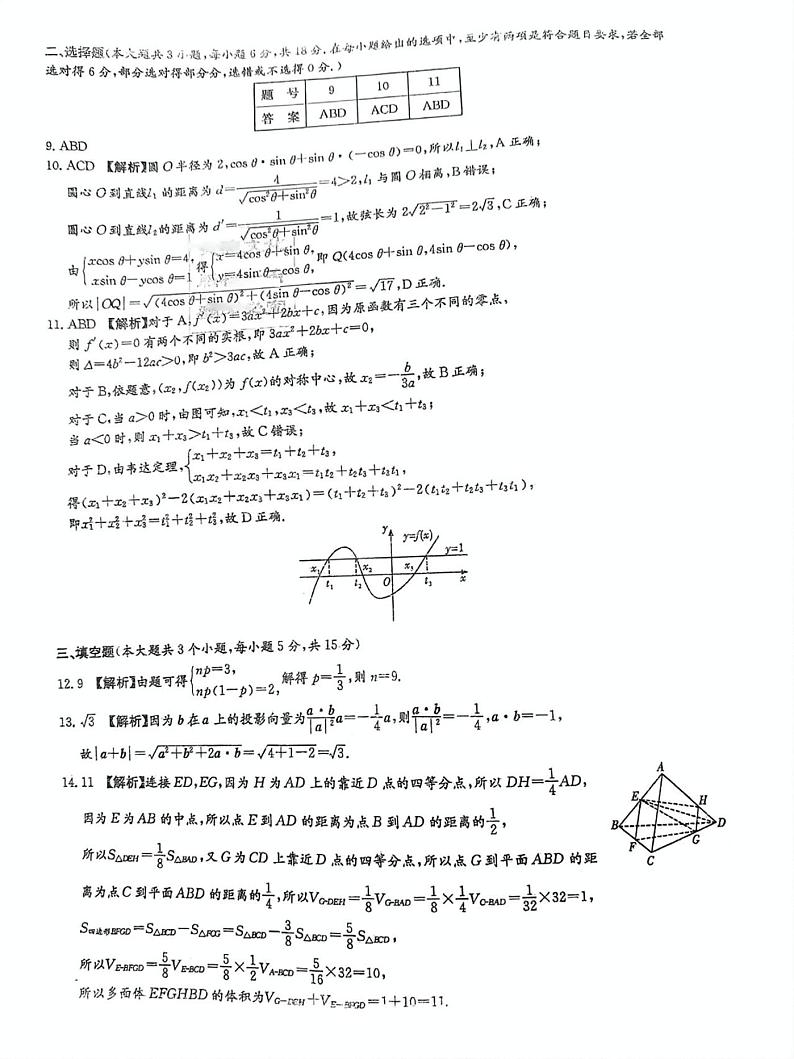 二、选择题(本大题共3小题,每小题6分,共18分.在每小题给出的选项中,至少有两项是符合题目要求,若全部
选对得6分,部分选对得部分分,选错或不选得0分.)
题 号 9 10 11
答 案 ABD ACD ABD
9. ABD
10. ACD 【解析】圆O半径为2,cos θ·sin θ+sin θ·(-cos θ)=0,所以l₁⊥l₂,A正确;
圆心O到直线l₁的距离为d=4/√(cos²θ+sin²θ)=4>2,l₁与圆O相离,B错误;
圆心O到直线l₂的距离为d′=1/√(cos²θ+sin²θ)=1,故弦长为2√(2²-1²)=2√3,C正确;
由{xcos θ+ysin θ=4, xsin θ-ycos θ=1 得{x=4cos θ+sin θ, y=4sin θ-cos θ, 即Q(4cos θ+sin θ,4sin θ-cos θ),
所以|OQ|=√((4cos θ+sin θ)²+(4sin θ-cos θ)²)=√17,D正确.
11. ABD 【解析】对于A,f′(x)=3ax²+2bx+c,因为原函数有三个不同的零点,
则f′(x)=0有两个不同的实根,即3ax²+2bx+c=0,
则Δ=4b²-12ac>0,即b²>3ac,故A正确;
对于B,依题意,(x₂,f(x₂))为f(x)的对称中心,故x₂=-b/3a,故B正确;
对于C,当a>0时,由图可知,x₁<t₁,x₃<t₃,故x₁+x₃<t₁+t₃;
当a<0时,则x₁+x₃>t₁+t₃,故C错误;
对于D,由韦达定理,{x₁+x₂+x₃=t₁+t₂+t₃, x₁x₂+x₂x₃+x₃x₁=t₁t₂+t₂t₃+t₃t₁,
得(x₁+x₂+x₃)²-2(x₁x₂+x₂x₃+x₃x₁)=(t₁+t₂+t₃)²-2(t₁t₂+t₂t₃+t₃t₁),
即x₁²+x₂²+x₃²=t₁²+t₂²+t₃²,故D正确.
y y=f(x)
y=1
x₁ x₂ x₃
t₁ t₂ O t₃ x
三、填空题(本大题共3个小题,每小题5分,共15分)
12. 9 【解析】由题可得{np=3, np(1-p)=2, 解得p=1/3,则n=9.
13. √3 【解析】因为b在a上的投影向量为a·b/|a|²a=-1/4a,则a·b/|a|²=-1/4,a·b=-1,
故|a+b|=√(a²+b²+2a·b)=√(4+1-2)=√3.
14. 11 【解析】连接ED,EG,因为H为AD上的靠近D点的四等分点,所以DH=1/4AD,
因为E为AB的中点,所以点E到AD的距离为点B到AD的距离的1/2,
所以S△DEH=1/8S△BAD,又G为CD上靠近D点的四等分点,所以点G到平面ABD的距
离为点C到平面ABD的距离的1/4,所以V_G-DEH=1/8V_G-BAD=1/8×1/4V_C-BAD=1/32×32=1,
S四边形BFGD=S△BCD-S△FCG=S△BCD-3/8S△BCD=5/8S△BCD,
所以V_E-BFGD=5/8V_E-BCD=5/8×1/2V_A-BCD=5/16×32=10,
所以多面体EFGHBD的体积为V_G-DEH+V_E-BFGD=1+10=11.
A
E H
B D
F G
C